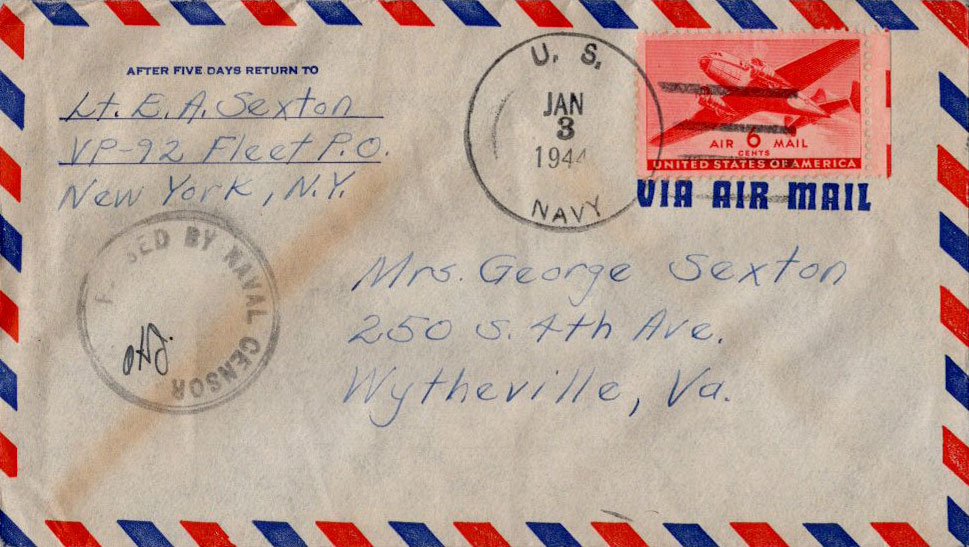 AFTER FIVE DAYS RETURN TO
Lt. E. A. Sexton
VP-92 Fleet P.O.
New York, N.Y.
U. S.
JAN
3
1944
NAVY
AIR 6 MAIL
CENTS
UNITED STATES OF AMERICA
VIA AIR MAIL
PASSED BY NAVAL CENSOR
Mrs. George Sexton
250 S. 4th Ave.
Wytheville, Va.